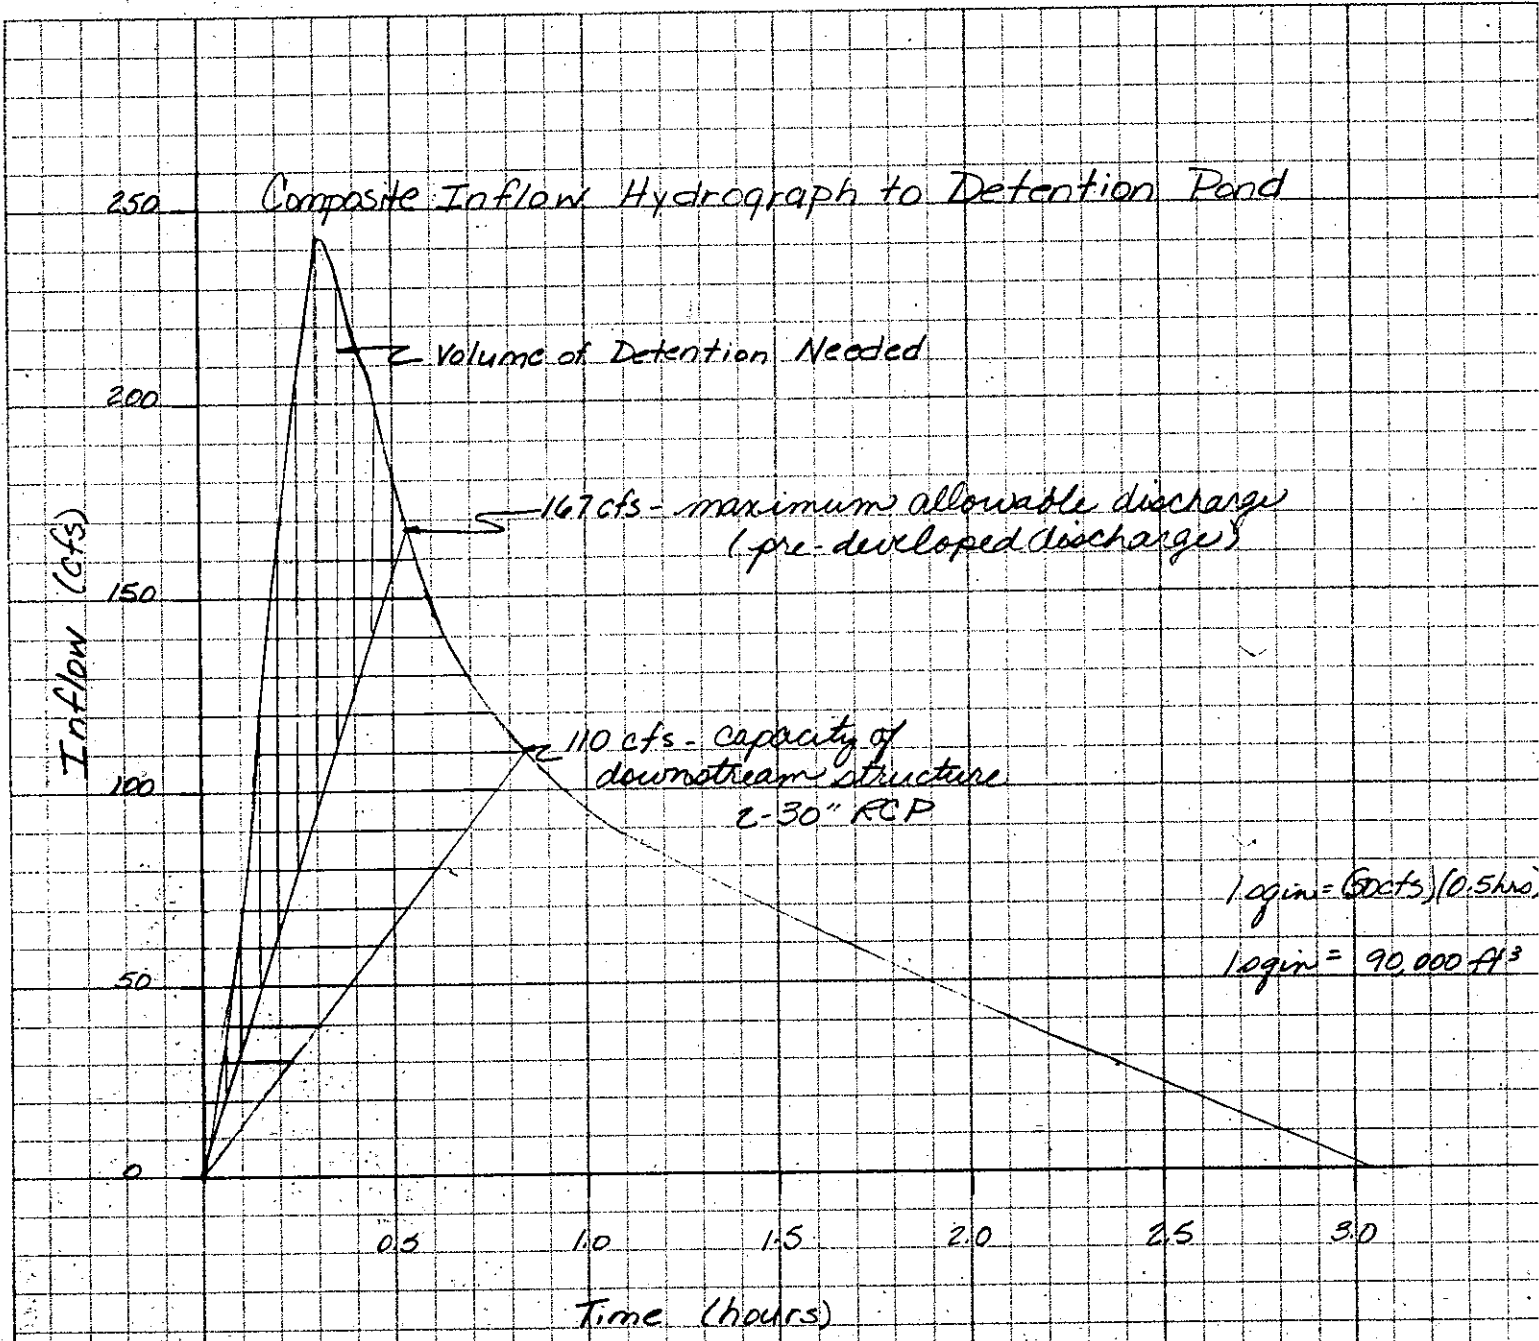 Composite Inflow Hydrograph to Detention Pond
250
Volume of Detention Needed
200
167 cfs - maximum allowable discharge
(pre-developed discharge)
150
Inflow (cfs)
110 cfs - capacity of
downstream structure
2-30" RCP
100
1 sq in = (50cfs)(0.5hrs)
1 sq in = 90,000 ft³
50
0
0.5 1.0 1.5 2.0 2.5 3.0
Time (hours)